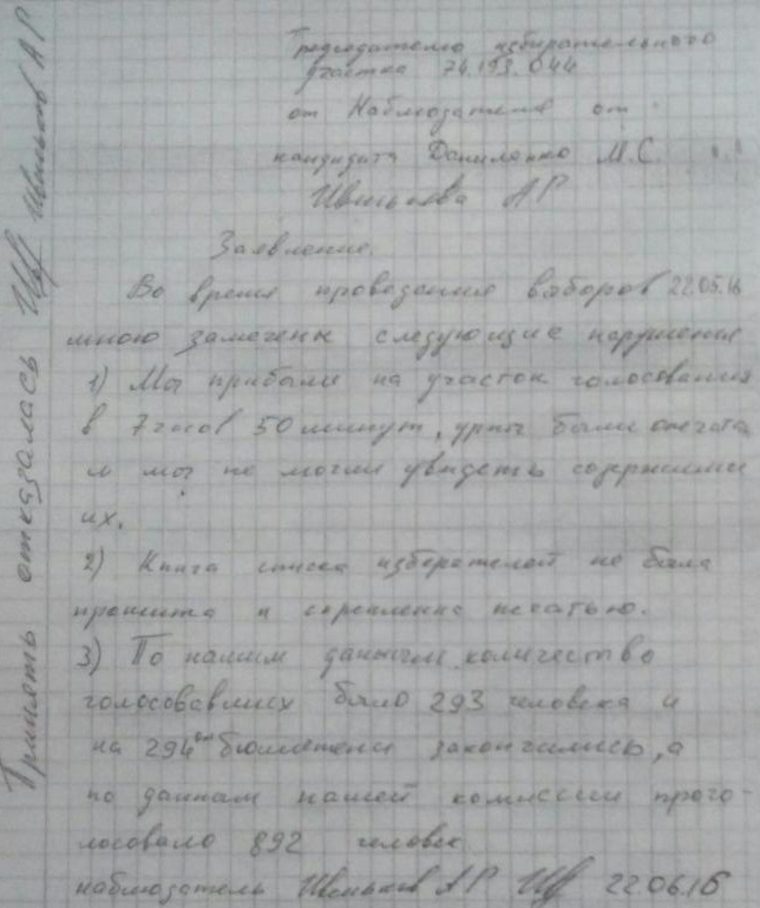 Председателю избирательного
участка 74.193.044
от Наблюдателя от
кандидата Даниленко М.С.
А Р
Заявление.
Во время проведения выборов 22.05.16
мною замечены следующие нарушения
1) Мы прибыли на участок голосования
в 7 часов 50 минут, урны были опечата
и мы не могли увидеть содержимое
их.
2) Книга списка избирателей не была
прошита и скреплена печатью.
3) По нашим данным количество
голосовавших было 293 человека и
на 294ом бюллетени закончились, а
по данным нашей комиссии прого-
лосовало 892 человек
наблюдатель А Р 22.06.16
Принять отказалась А Р